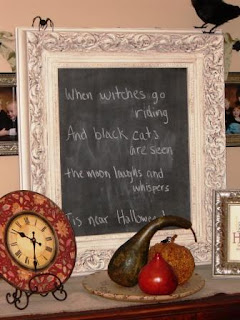 When witches go
riding
And black cats
are seen
the moon laughs and
whispers
Tis near Halloween